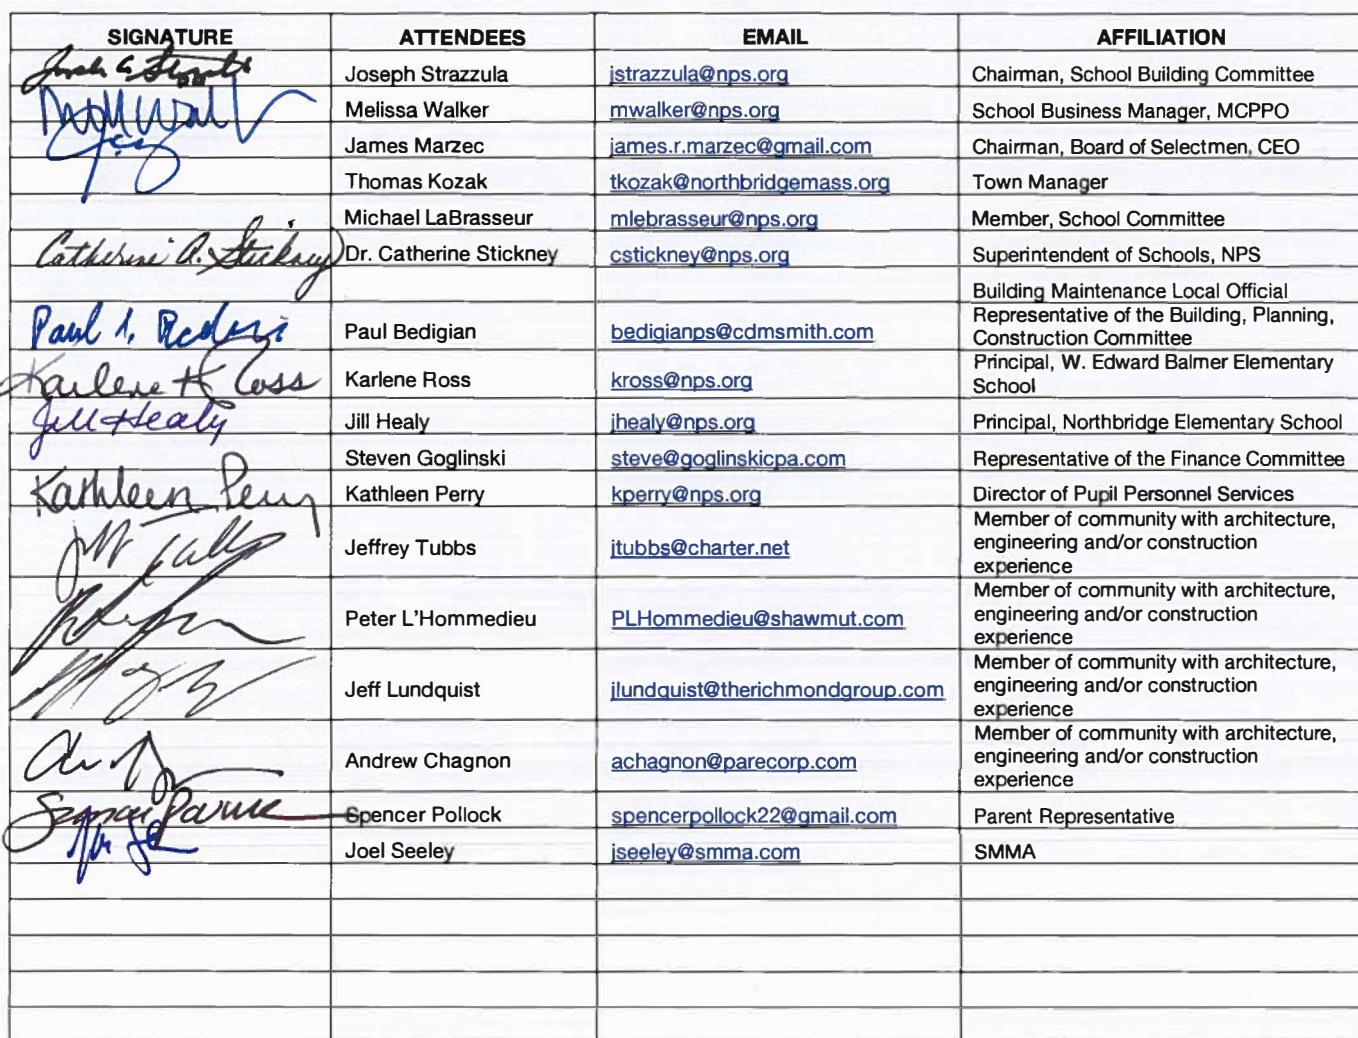 SIGNATURE ATTENDEES EMAIL AFFILIATION
Joseph Strazzula jstrazzula@nps.org Chairman, School Building Committee
Melissa Walker mwalker@nps.org School Business Manager, MCPPO
James Marzec james.r.marzec@gmail.com Chairman, Board of Selectmen, CEO
Thomas Kozak tkozak@northbridgemass.org Town Manager
Michael LaBrasseur mlebrasseur@nps.org Member, School Committee
Catherine A. Stickney Dr. Catherine Stickney cstickney@nps.org Superintendent of Schools, NPS
Building Maintenance Local Official
Paul Paul Bedigian bedigianps@cdmsmith.com Representative of the Building, Planning,
Construction Committee
Karlene H Ross Karlene Ross kross@nps.org Principal, W. Edward Balmer Elementary
School
Jill Healy Jill Healy jhealy@nps.org Principal, Northbridge Elementary School
Steven Goglinski steve@goglinskicpa.com Representative of the Finance Committee
Kathleen Perry Kathleen Perry kperry@nps.org Director of Pupil Personnel Services
Jeffrey Tubbs jtubbs@charter.net Member of community with architecture,
engineering and/or construction
experience
Peter L'Hommedieu PLHommedieu@shawmut.com Member of community with architecture,
engineering and/or construction
experience
Jeff Lundquist jlundquist@therichmondgroup.com Member of community with architecture,
engineering and/or construction
experience
Andrew Chagnon achagnon@parecorp.com Member of community with architecture,
engineering and/or construction
experience
Spencer Pollock spencerpollock22@gmail.com Parent Representative
Joel Seeley jseeley@smma.com SMMA